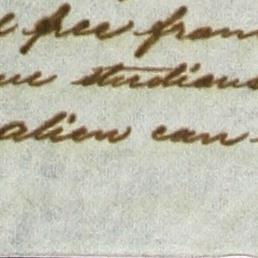 free from
studious
alien can